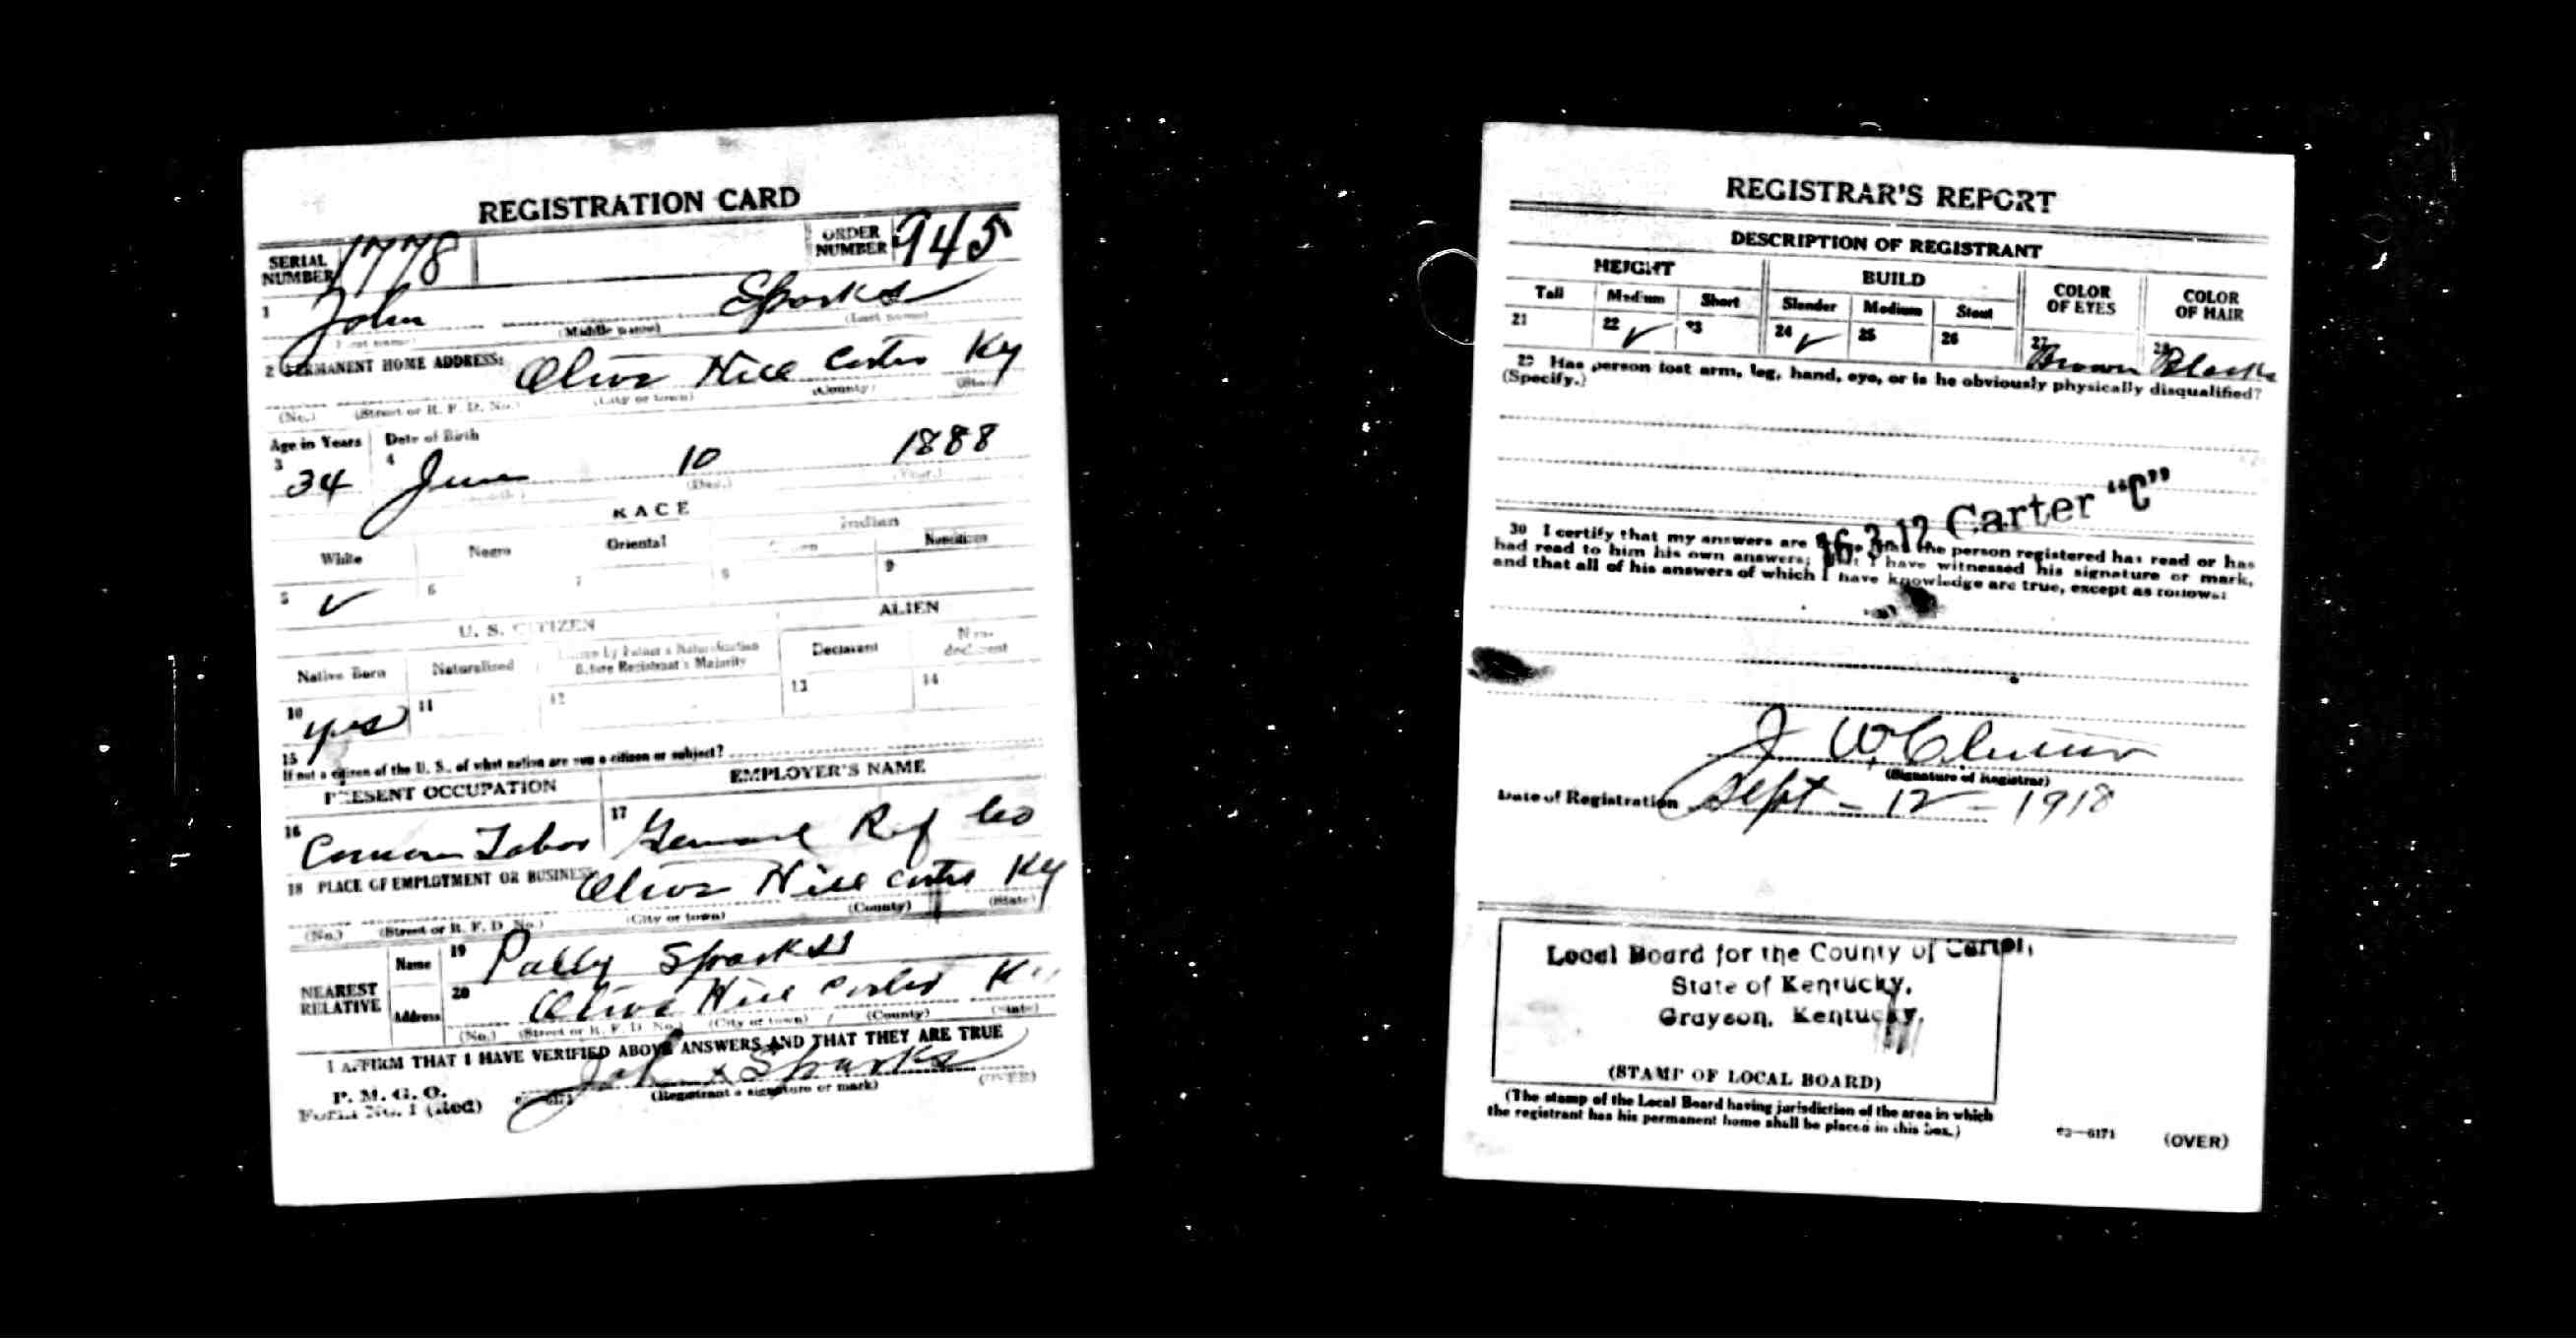 REGISTRATION CARD
SERIAL NUMBER 1778 ORDER NUMBER 945
1 John Sparks
(First name) (Middle name) (Last name)
2 PERMANENT HOME ADDRESS:
Olive Hill Carter Ky
(No.) (Street or R. F. D. No.) (City or town) (County) (State)
Age in Years Date of Birth
3 34 4 June 10 1888
(Month.) (Day.) (Year.)
RACE
White Negro Oriental Indian
Citizen Noncitizen
5 ✓ 6 7 8 9
U. S. CITIZEN ALIEN
Native Born Naturalized Citizen by Father's Naturalization Before Registrant's Majority Declarant Non-declarant
10 yes 11 12 13 14
15 If not a citizen of the U. S., of what nation are you a citizen or subject?
PRESENT OCCUPATION EMPLOYER'S NAME
16 17 Ref Co
18 PLACE OF EMPLOYMENT OR BUSINESS:
Olive Hill Carter Ky
(No.) (Street or R. F. D. No.) (City or town) (County) (State)
NEAREST RELATIVE
Name 19 Sparks
Address 20 Olive Hill Carter Ky
(No.) (Street or R. F. D. No.) (City or town) (County) (State)
I AFFIRM THAT I HAVE VERIFIED ABOVE ANSWERS AND THAT THEY ARE TRUE
P. M. G. O.
Form No. 1 (Red)
John x Sparks
(Registrant's signature or mark) (OVER)
REGISTRAR'S REPORT
DESCRIPTION OF REGISTRANT
HEIGHT BUILD COLOR OF EYES COLOR OF HAIR
Tall Medium Short Slender Medium Stout
21 22 ✓ 23 24 ✓ 25 26 27 Brown 28 Black
29 Has person lost arm, leg, hand, eye, or is he obviously physically disqualified?
(Specify.)
16 3 12 Carter "C"
30 I certify that my answers are the person registered has read or has
had read to him his own answers; that I have witnessed his signature or mark,
and that all of his answers of which I have knowledge are true, except as follows:
J W
(Signature of Registrar)
Date of Registration Sept - 12 - 1918
Local Board for the County of Carter,
State of Kentucky,
Grayson, Kentucky.
(STAMP OF LOCAL BOARD)
(The stamp of the Local Board having jurisdiction of the area in which
the registrant has his permanent home shall be placed in this box.)
03—6171 (OVER)